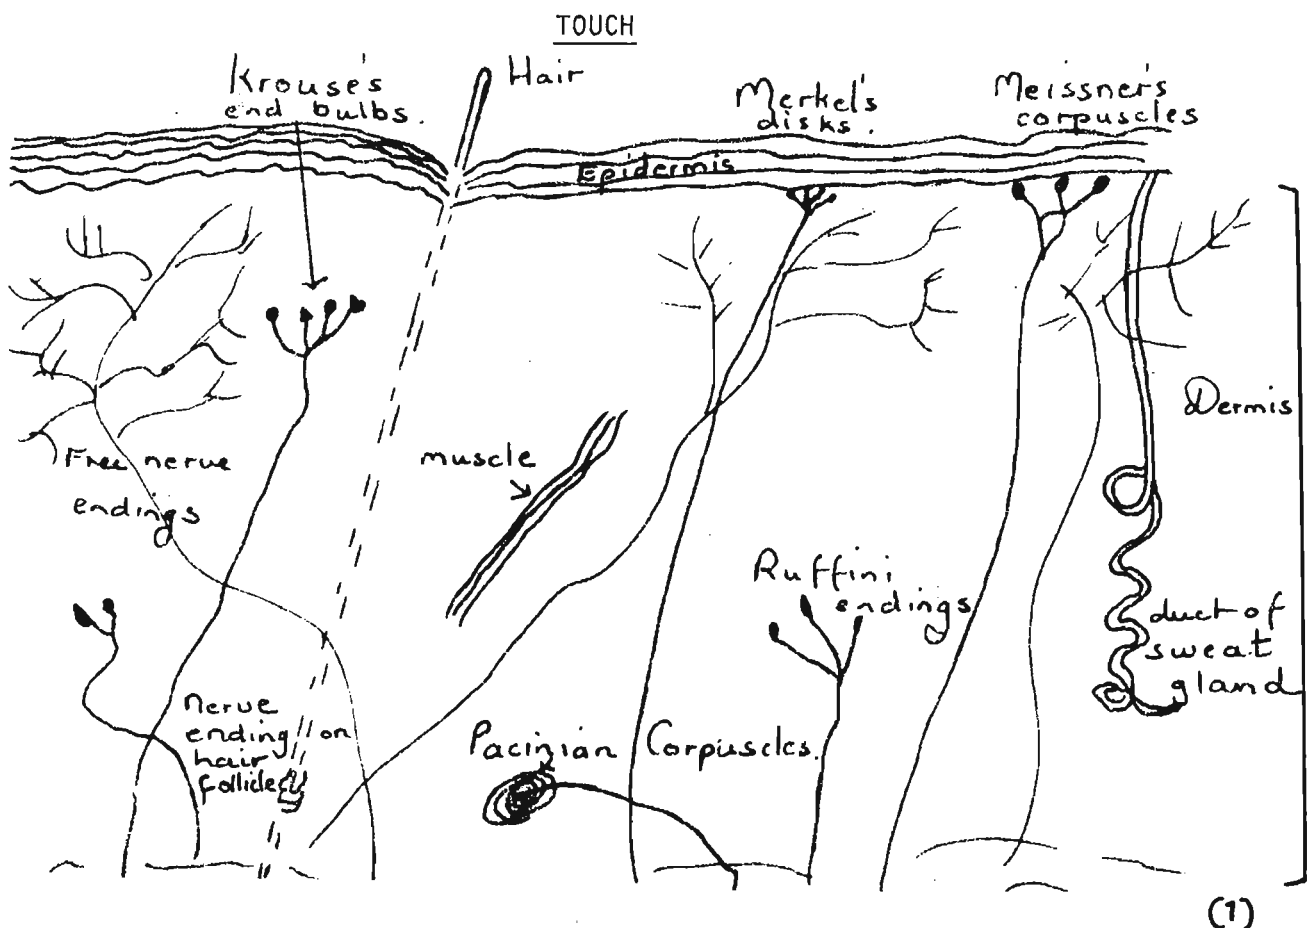 TOUCH
Krouse's
end bulbs.
Hair
Merkel's
disks.
Meissner's
corpuscles
Epidermis
Dermis
Free nerve
endings
muscle
Ruffini
endings
duct of
sweat
gland
nerve
ending on
hair
follicle
Pacinian Corpuscles.
(1)